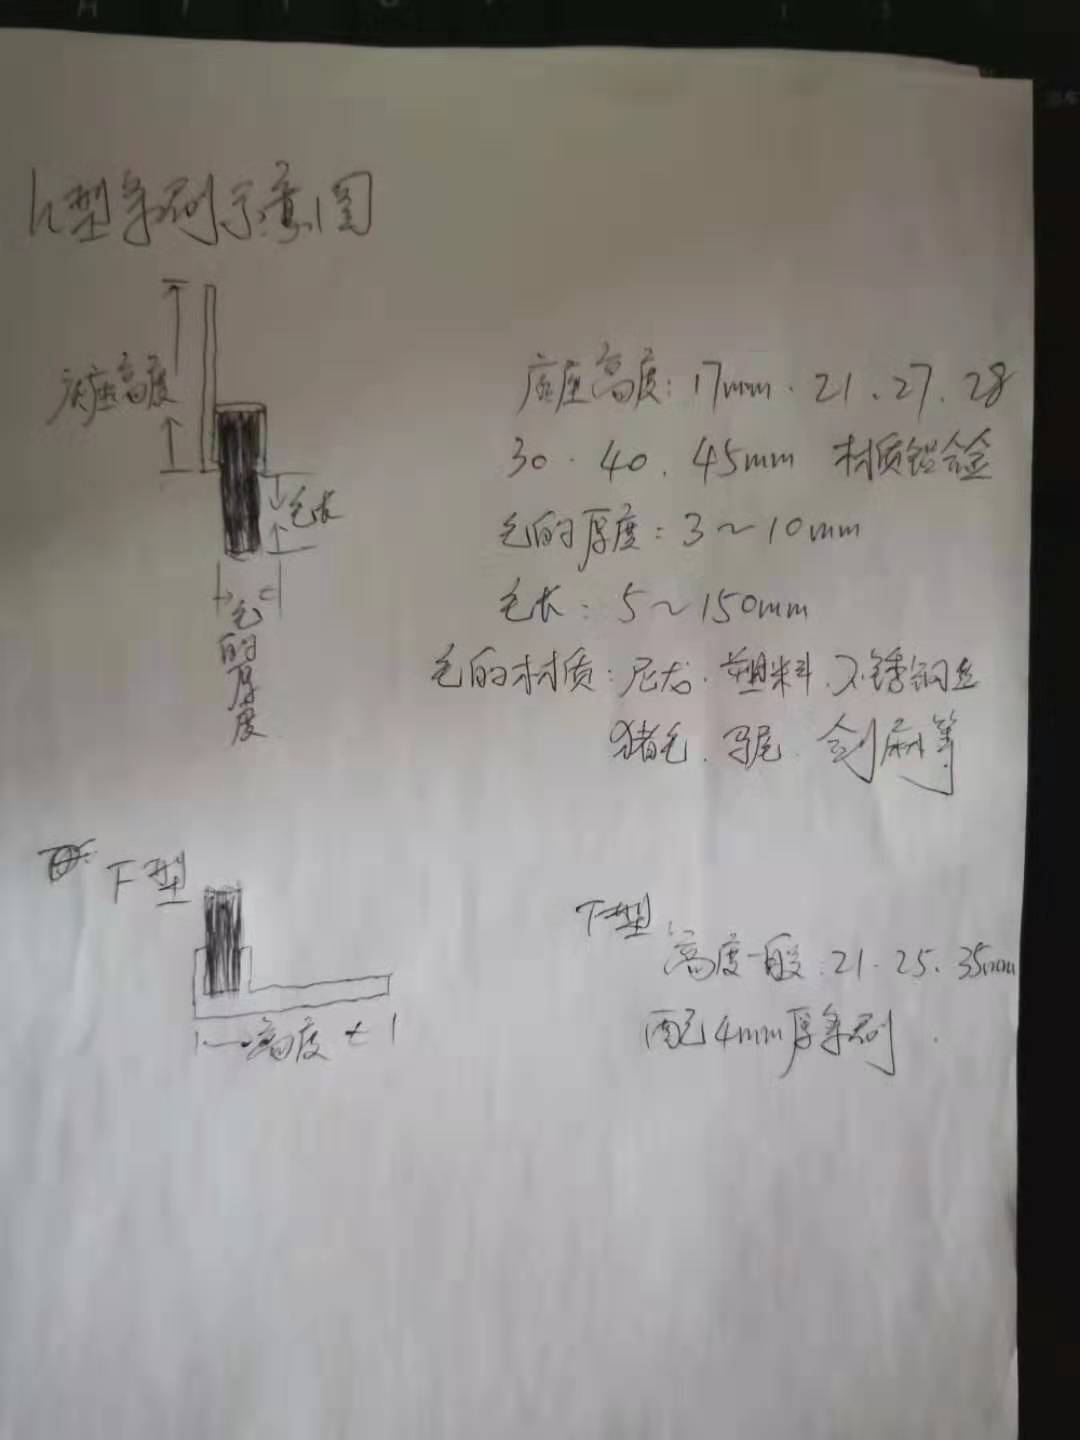 h型条刷示意图
底座高度
毛长
毛的厚度
底座高度：17mm．21、27、28
30．40、45mm 材质铝合金
毛的厚度：3～10mm
毛长：5～150mm
毛的材质：尼龙．塑料、不锈钢丝
猪毛、马尾、剑麻等
F型
高度
F型：
高度一般：21．25、35mm
配4mm厚条刷．